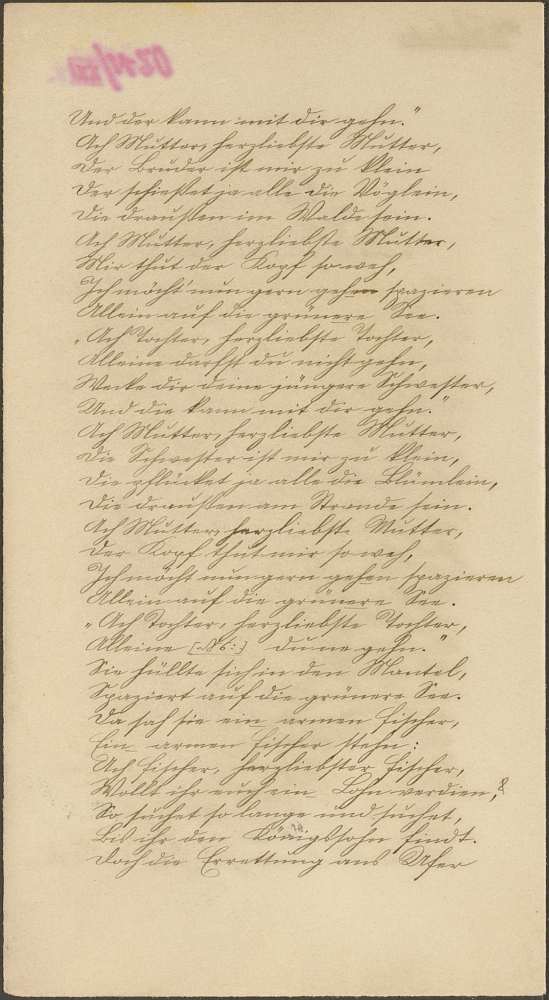 Und der kann mit dir gehn."
Ach Mutter, herzliebste Mutter,
Der Bruder ist mir zu klein
Der schießet ja alle die Vöglein,
Die draußen im Walde sein.
Ach Mutter, herzliebste Mutter,
Mir thut der Kopf so weh,
Ich möcht' nun gern gehen spazieren
Allein auf die grünere See.
"Ach Tochter, herzliebste Tochter,
Alleine darfst du nicht gehn,
Wecke dir deine jüngere Schwester,
Und die kann mit dir gehn."
Ach Mutter, herzliebste Mutter,
Die Schwester ist mir zu klein,
Die pflücket ja alle die Blümlein,
Die draußen am Strande sein.
Ach Mutter, herzliebste Mutter,
Der Kopf thut mir so weh,
Ich möcht nun gern gehen spazieren
Allein auf die grünere See.
"Ach Tochter, herzliebste Tochter,
Alleine du gehn."
Sie hüllte sich in den Mantel,
Spaziert auf die grünere See.
Da sah sie ein armen Fischer,
Ein armen Fischer stehn:
Ach Fischer, herzliebster Fischer,
Wollt ihr euch ein Lohn verdien,
So suchet so lange und suchet,
Bis ihr den Königssohn findt.
Doch die Errettung ans Ufer